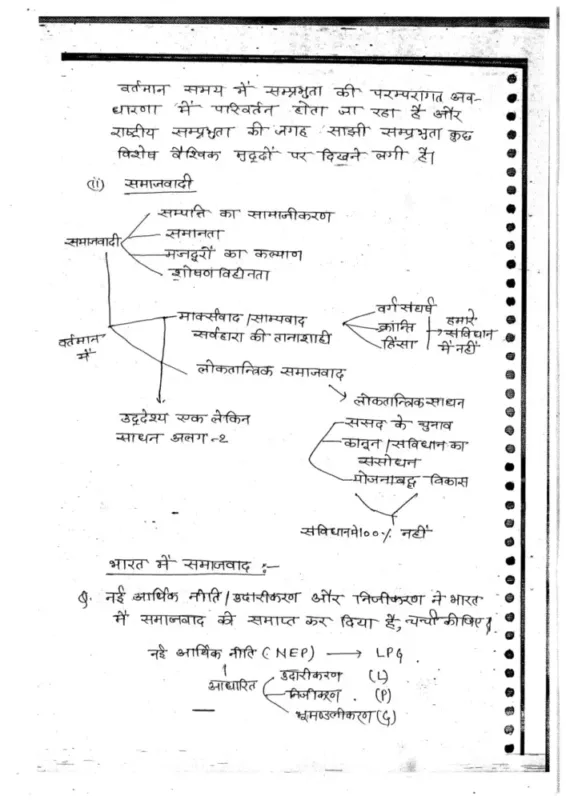 वर्तमान समय में सम्प्रभुता की परम्परागत अव-
धारणा में परिवर्तन होता जा रहा है और
राष्ट्रीय सम्प्रभुता की जगह साझी सम्प्रभुता कुछ
विशेष वैश्विक मुद्दों पर दिखने लगी है।
(ii) समाजवादी
सम्पत्ति का सामाजीकरण
समानता
समाजवादी
मजदूरों का कल्याण
शोषण विहीनता
मार्क्सवाद/साम्यवाद
सर्वहारा की तानाशाही
वर्ग संघर्ष
क्रान्ति
हिंसा
हमारे
संविधान
में नहीं
वर्तमान
में
लोकतान्त्रिक समाजवाद
लोकतान्त्रिक साधन
उद्देश्य एक लेकिन
साधन अलग-2
संसद के चुनाव
कानून/संविधान का
संसोधन
योजनाबद्ध विकास
संविधान में 100% नहीं
भारत में समाजवाद :-
Q. नई आर्थिक नीति/उदारीकरण और निजीकरण ने भारत
में समाजवाद को समाप्त कर दिया है, चर्चा कीजिए।
नई आर्थिक नीति (NEP) → LPG
आधारित
उदारीकरण (L)
निजीकरण . (P)
भूमण्डलीकरण (G)